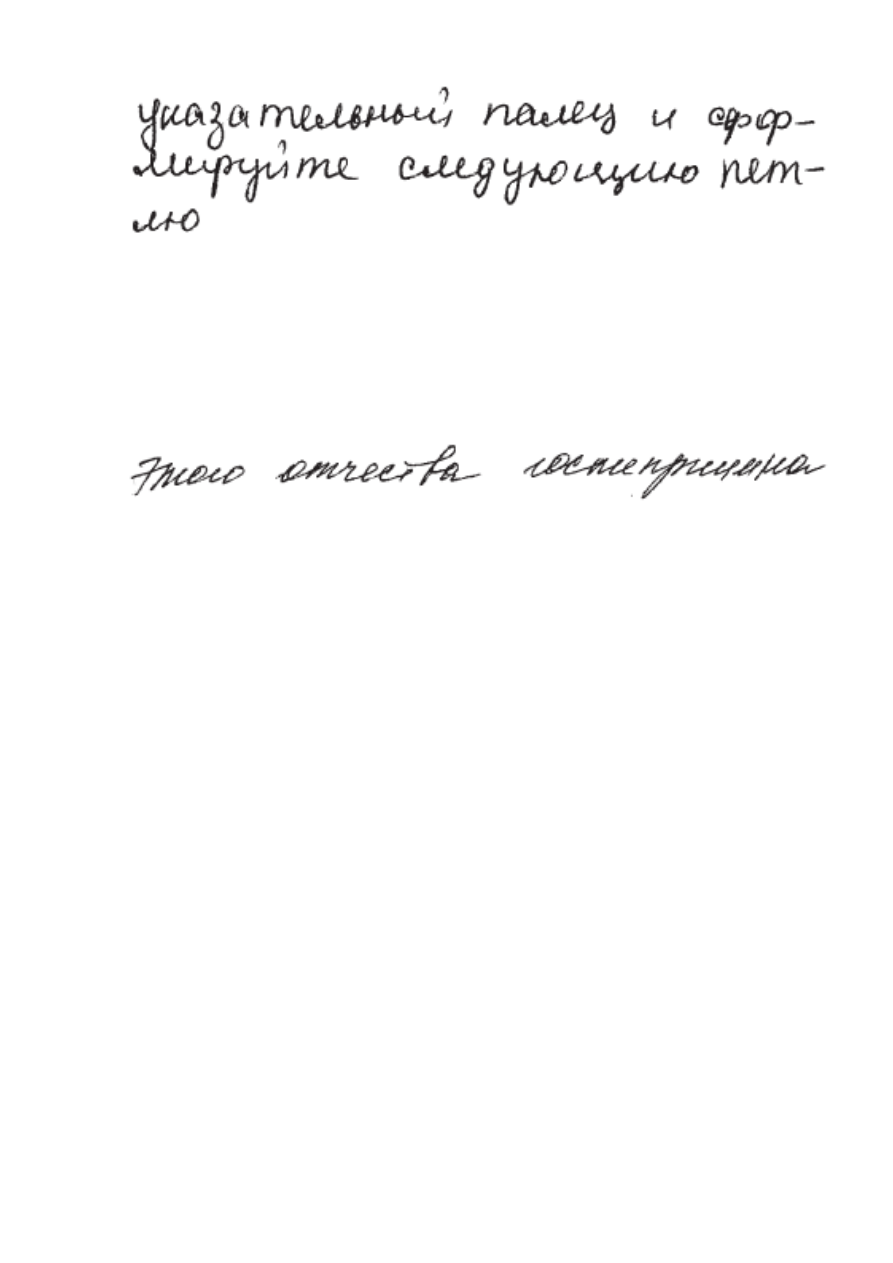 указательный палец и сфор-
мируйте следующую пет-
лю
этого отчества гостеприимна